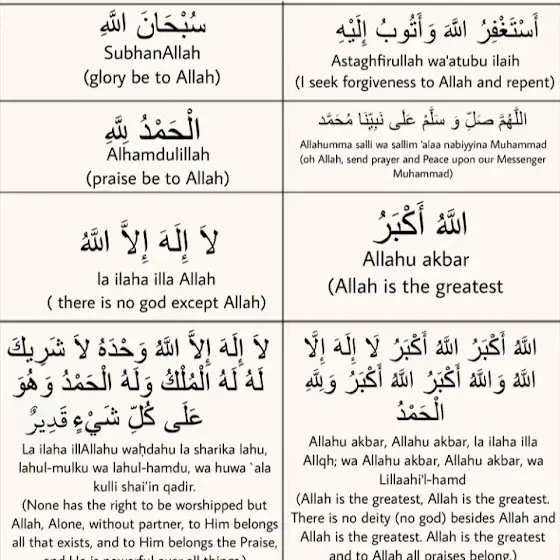 سُبْحَانَ اللَّهِ
SubhanAllah
(glory be to Allah)
أَسْتَغْفِرُ اللَّهَ وَأَتُوبُ إِلَيْهِ
Astaghfirullah wa'atubu ilaih
(I seek forgiveness to Allah and repent)
الْحَمْدُ لِلَّهِ
Alhamdulillah
(praise be to Allah)
اللَّهُمَّ صَلِّ وَ سَلَّمْ عَلَى نَبِيِّنَا مُحَمَّد
Allahumma salli wa sallim 'alaa nabiyyina Muhammad
(oh Allah, send prayer and Peace upon our Messenger
Muhammad)
لاَ إِلَهَ إِلاَّ اللَّهُ
la ilaha illa Allah
( there is no god except Allah)
اللَّهُ أَكْبَرُ
Allahu akbar
(Allah is the greatest
لاَ إِلَهَ إِلاَّ اللَّهُ وَحْدَهُ لاَ شَرِيكَ
لَهُ لَهُ الْمُلْكُ وَلَهُ الْحَمْدُ وَهُوَ
عَلَى كُلِّ شَيْءٍ قَدِيرٌ
La ilaha illAllahu waḥdahu la sharika lahu,
lahul-mulku wa lahul-hamdu, wa huwa `ala
kulli shai’in qadir.
(None has the right to be worshipped but
Allah, Alone, without partner, to Him belongs
all that exists, and to Him belongs the Praise,
and He is powerful over all things.)
اللَّهُ أَكْبَرُ اللَّهُ أَكْبَرُ لَا إِلَهَ إِلَّا
اللَّهُ وَاللَّهُ أَكْبَرُ اللَّهُ أَكْبَرُ وَلِلَّهِ
الْحَمْدُ
Allahu akbar, Allahu akbar, la ilaha illa
Allqh; wa Allahu akbar, Allahu akbar, wa
Lillaahi'l-hamd
(Allah is the greatest, Allah is the greatest.
There is no deity (no god) besides Allah and
Allah is the greatest. Allah is the greatest
and to Allah all praises belong.)